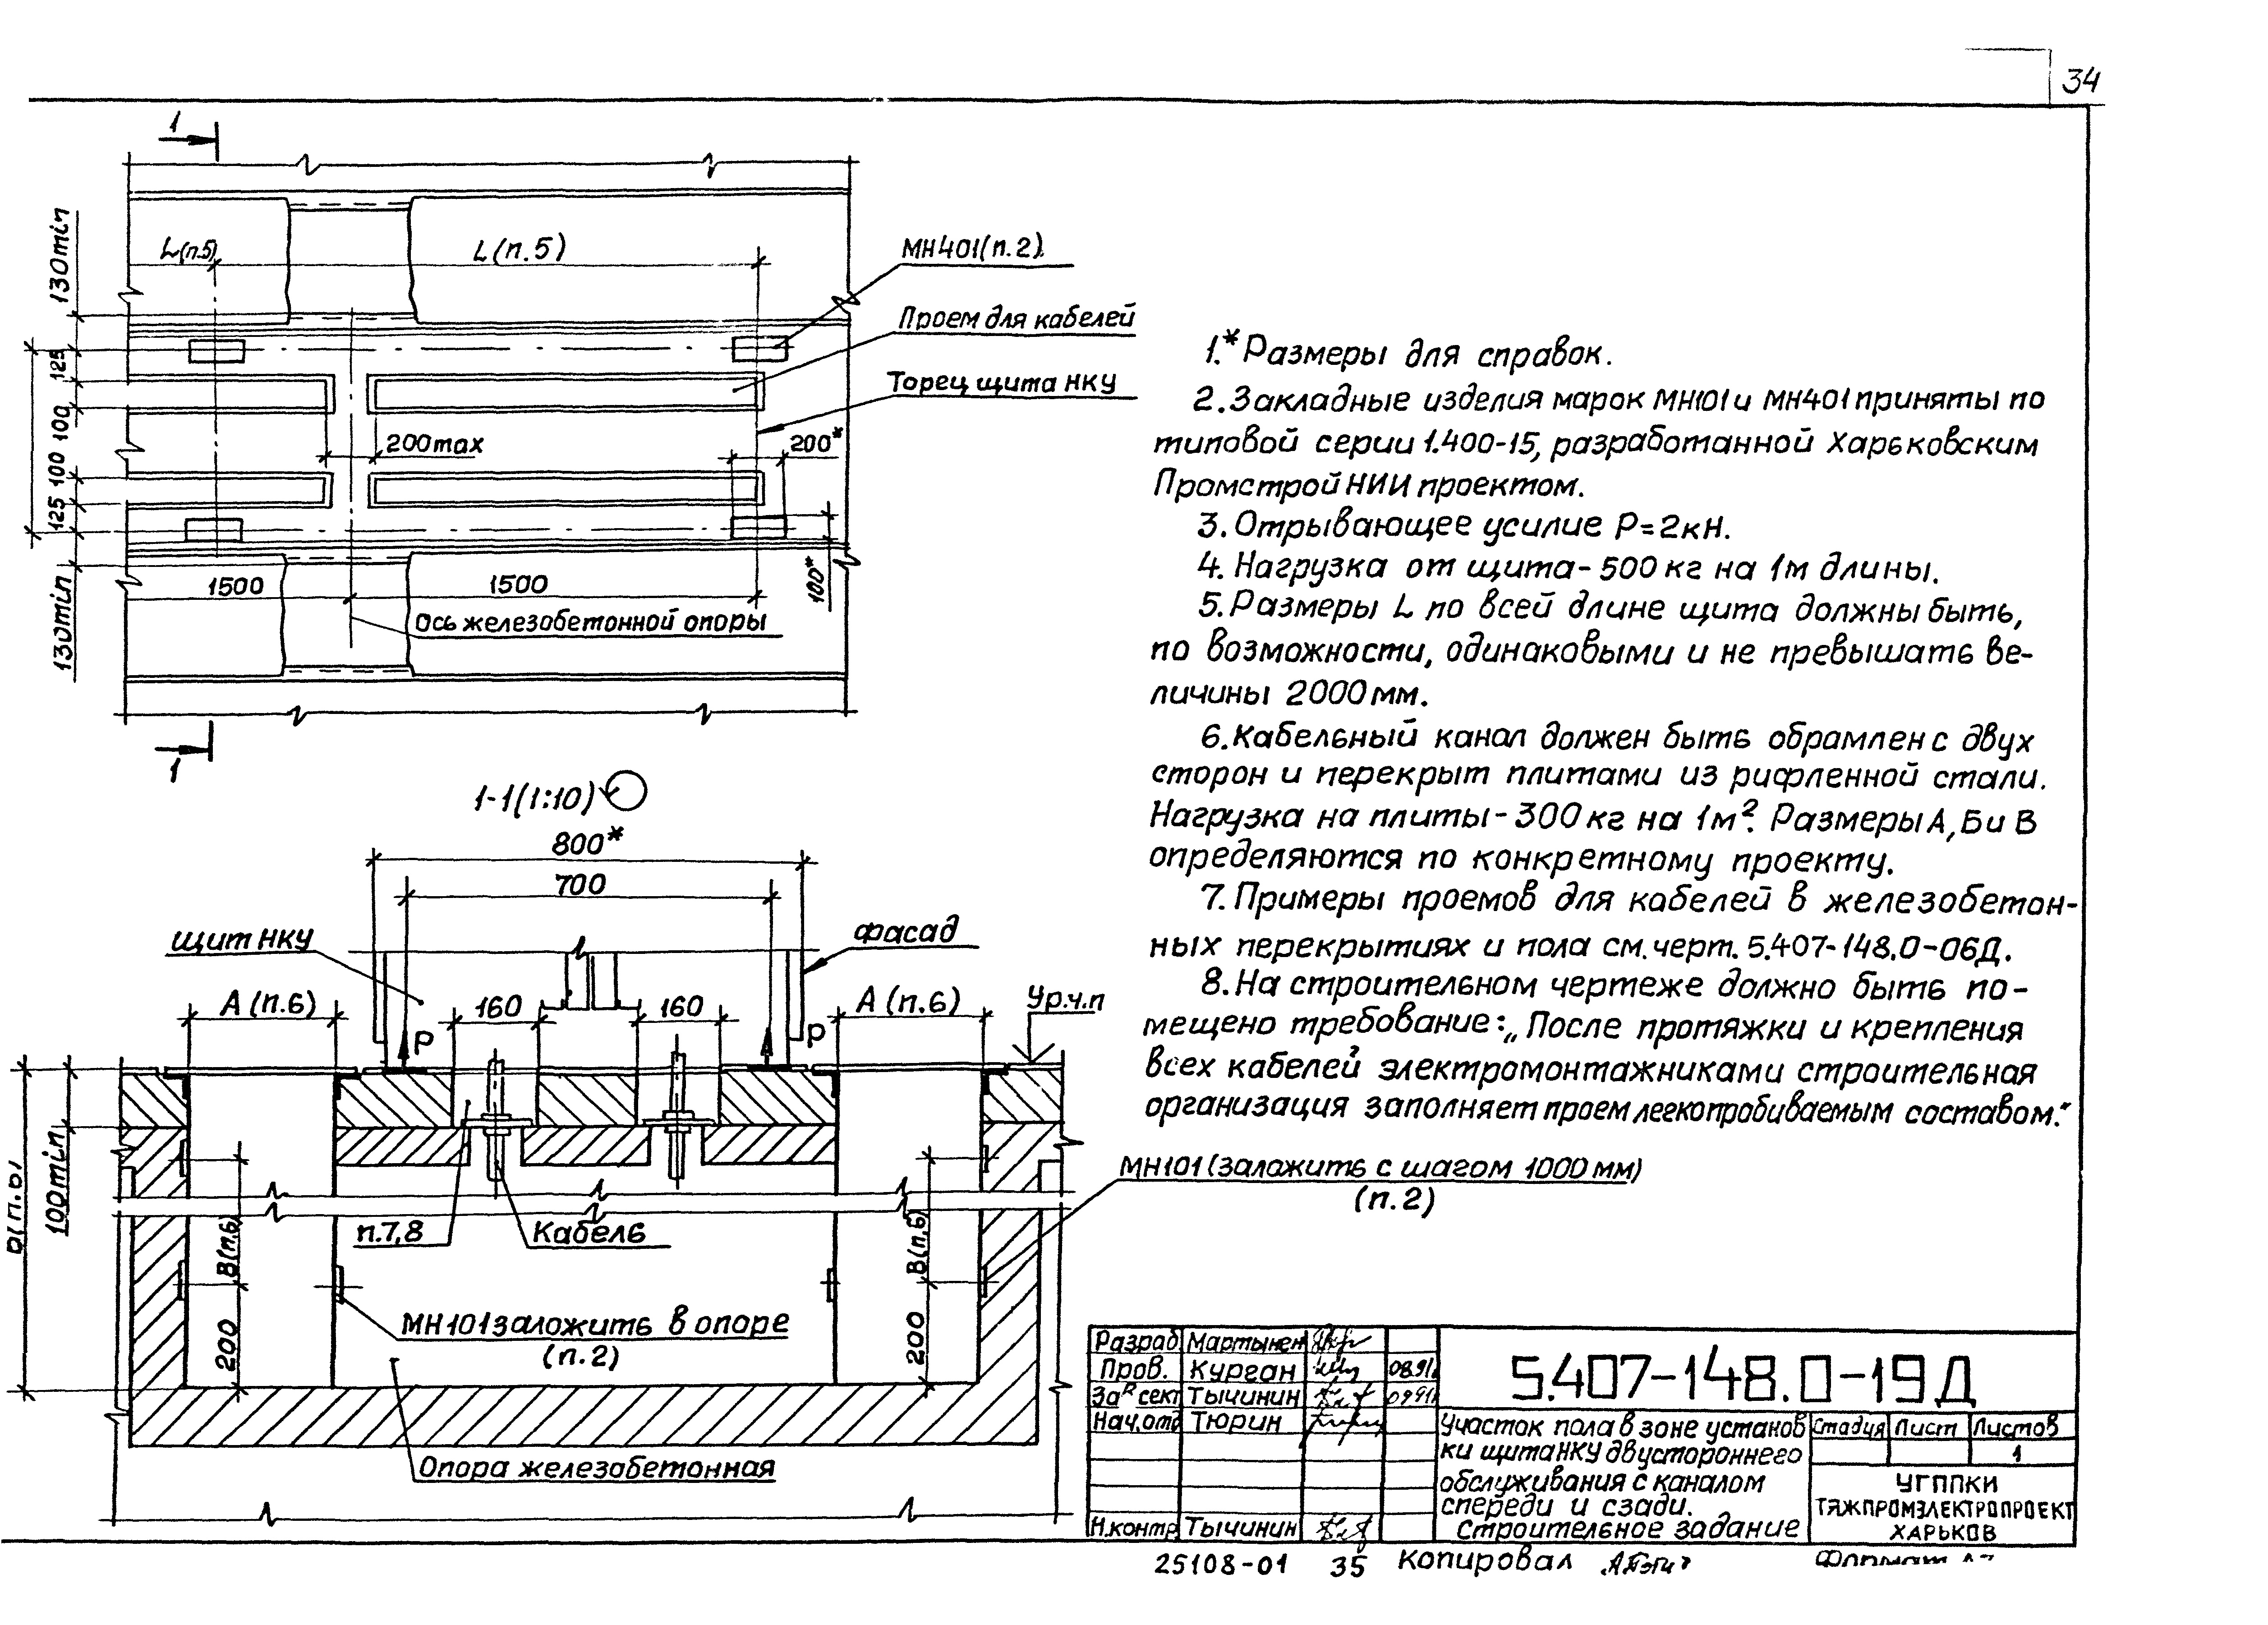 34
1
130min
L(п.5)
L(п.5)
МН401(п.2)
Проем для кабелей
Торец щита НКУ
125
100
100
125
200max
200*
130min
1500
1500
100*
Ось железобетонной опоры
1
1-1(1:10)
800*
700
щит НКУ
фасад
А(п.6)
160
160
А(п.6)
Ур.ч.п
Р
Р
100min
п.7,8
Кабель
В(п.6)
В(п.6)
200
200
МН101 заложить в опоре
(п.2)
Опора железобетонная
МН101(заложить с шагом 1000мм)
(п.2)
1.*Размеры для справок.
2.Закладные изделия марок МН101 и МН401 приняты по
типовой серии 1.400-15, разработанной Харьковским
ПромстройНИИпроектом.
3.Отрывающее усилие Р=2кН.
4.Нагрузка от щита-500кг на 1м длины.
5.Размеры L по всей длине щита должны быть,
по возможности, одинаковыми и не превышать ве-
личины 2000мм.
6.Кабельный канал должен быть обрамлен с двух
сторон и перекрыт плитами из рифленной стали.
Нагрузка на плиты-300кг на 1м². Размеры А, Б и В
определяются по конкретному проекту.
7.Примеры проемов для кабелей в железобетон-
ных перекрытиях и пола см.черт.5.407-148.0-06Д.
8.На строительном чертеже должно быть по-
мещено требование:„После протяжки и крепления
всех кабелей электромонтажниками строительная
организация заполняет проем легкопробиваемым составом."
Разраб Мартынен
Пров. Курган 08.91
Зав сект Тычинин 09.91
Нач.отд Тюрин
Н.контр Тычинин
5.407-148.0-19Д
Участок пола в зоне установ
ки щита НКУ двустороннего
обслуживания с каналом
спереди и сзади.
Строительное задание
Стадия Лист Листов
1
УГППКИ
ТЯЖПРОМЭЛЕКТРОПРОЕКТ
ХАРЬКОВ
25108-01 35 Копировал
Формат